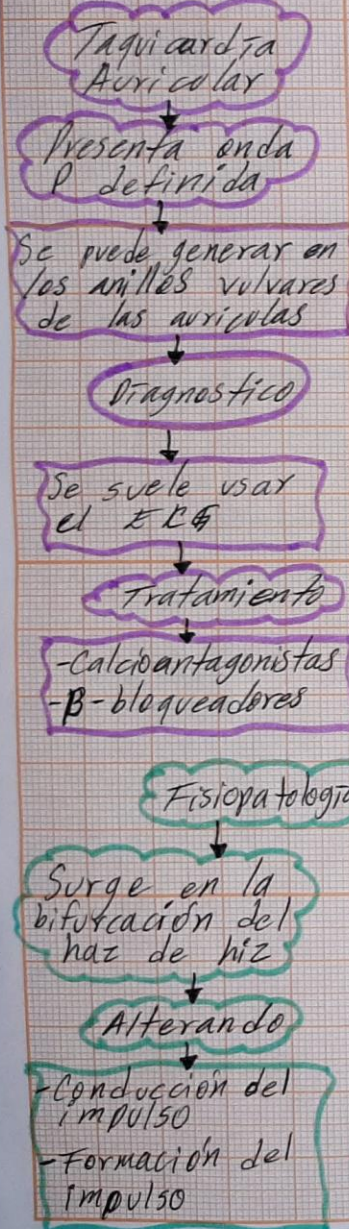 Taquicardia
Auricular
Presenta onda
P definida
Se puede generar en
los anillos vulvares
de las auriculas
Diagnostico
Se suele usar
el EKG
Tratamiento
-Calcioantagonistas
-β-bloqueadores
Fisiopatología
Surge en la
bifurcación del
haz de hiz
Alterando
-Conducción del
impulso
-Formación del
impulso